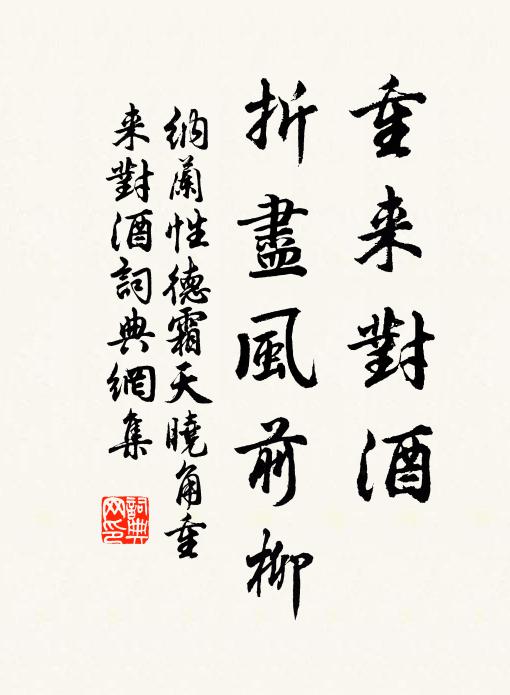 重来對酒
折盡風前柳
納蘭性德霜天曉角重
来對酒詞典網集
詞典
网印